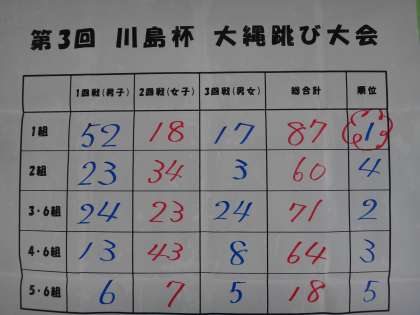 第3回 川島杯 大縄跳び大会
1回戦(男子) 2回戦(女子) 3回戦(男女) 総合計 順位
1組 52 18 17 87 1
2組 23 34 3 60 4
3・6組 24 23 24 71 2
4・6組 13 43 8 64 3
5・6組 6 7 5 18 5